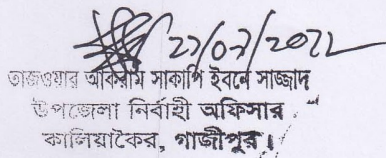 ২১/০৭/২০২২
তাজওয়ার আকরাম সাকাপি ইবনে সাজ্জাদ
উপজেলা নির্বাহী অফিসার
কালিয়াকৈর, গাজীপুর।